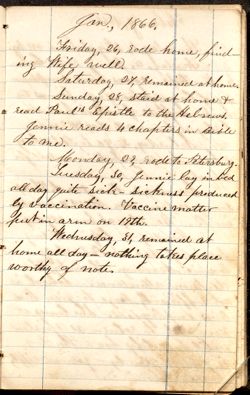 Jan, 1866.
Friday, 26, rode home, find
ing Wife well.
Saturday, 27, remained at home.
Sunday, 28, staid at home &
read Paul's Epistle to the Hebrews.
Jennie reads 4 chapters in Bible
to me.
Monday, 29, rode to Petersburg.
Tuesday, 30, Jennie lay in bed
all day quite sick - sickness produced
by vaccination. Vaccine matter
put in arm on 19th.
Wednesday, 31, remained at
home all day - nothing takes place
worthy of note.